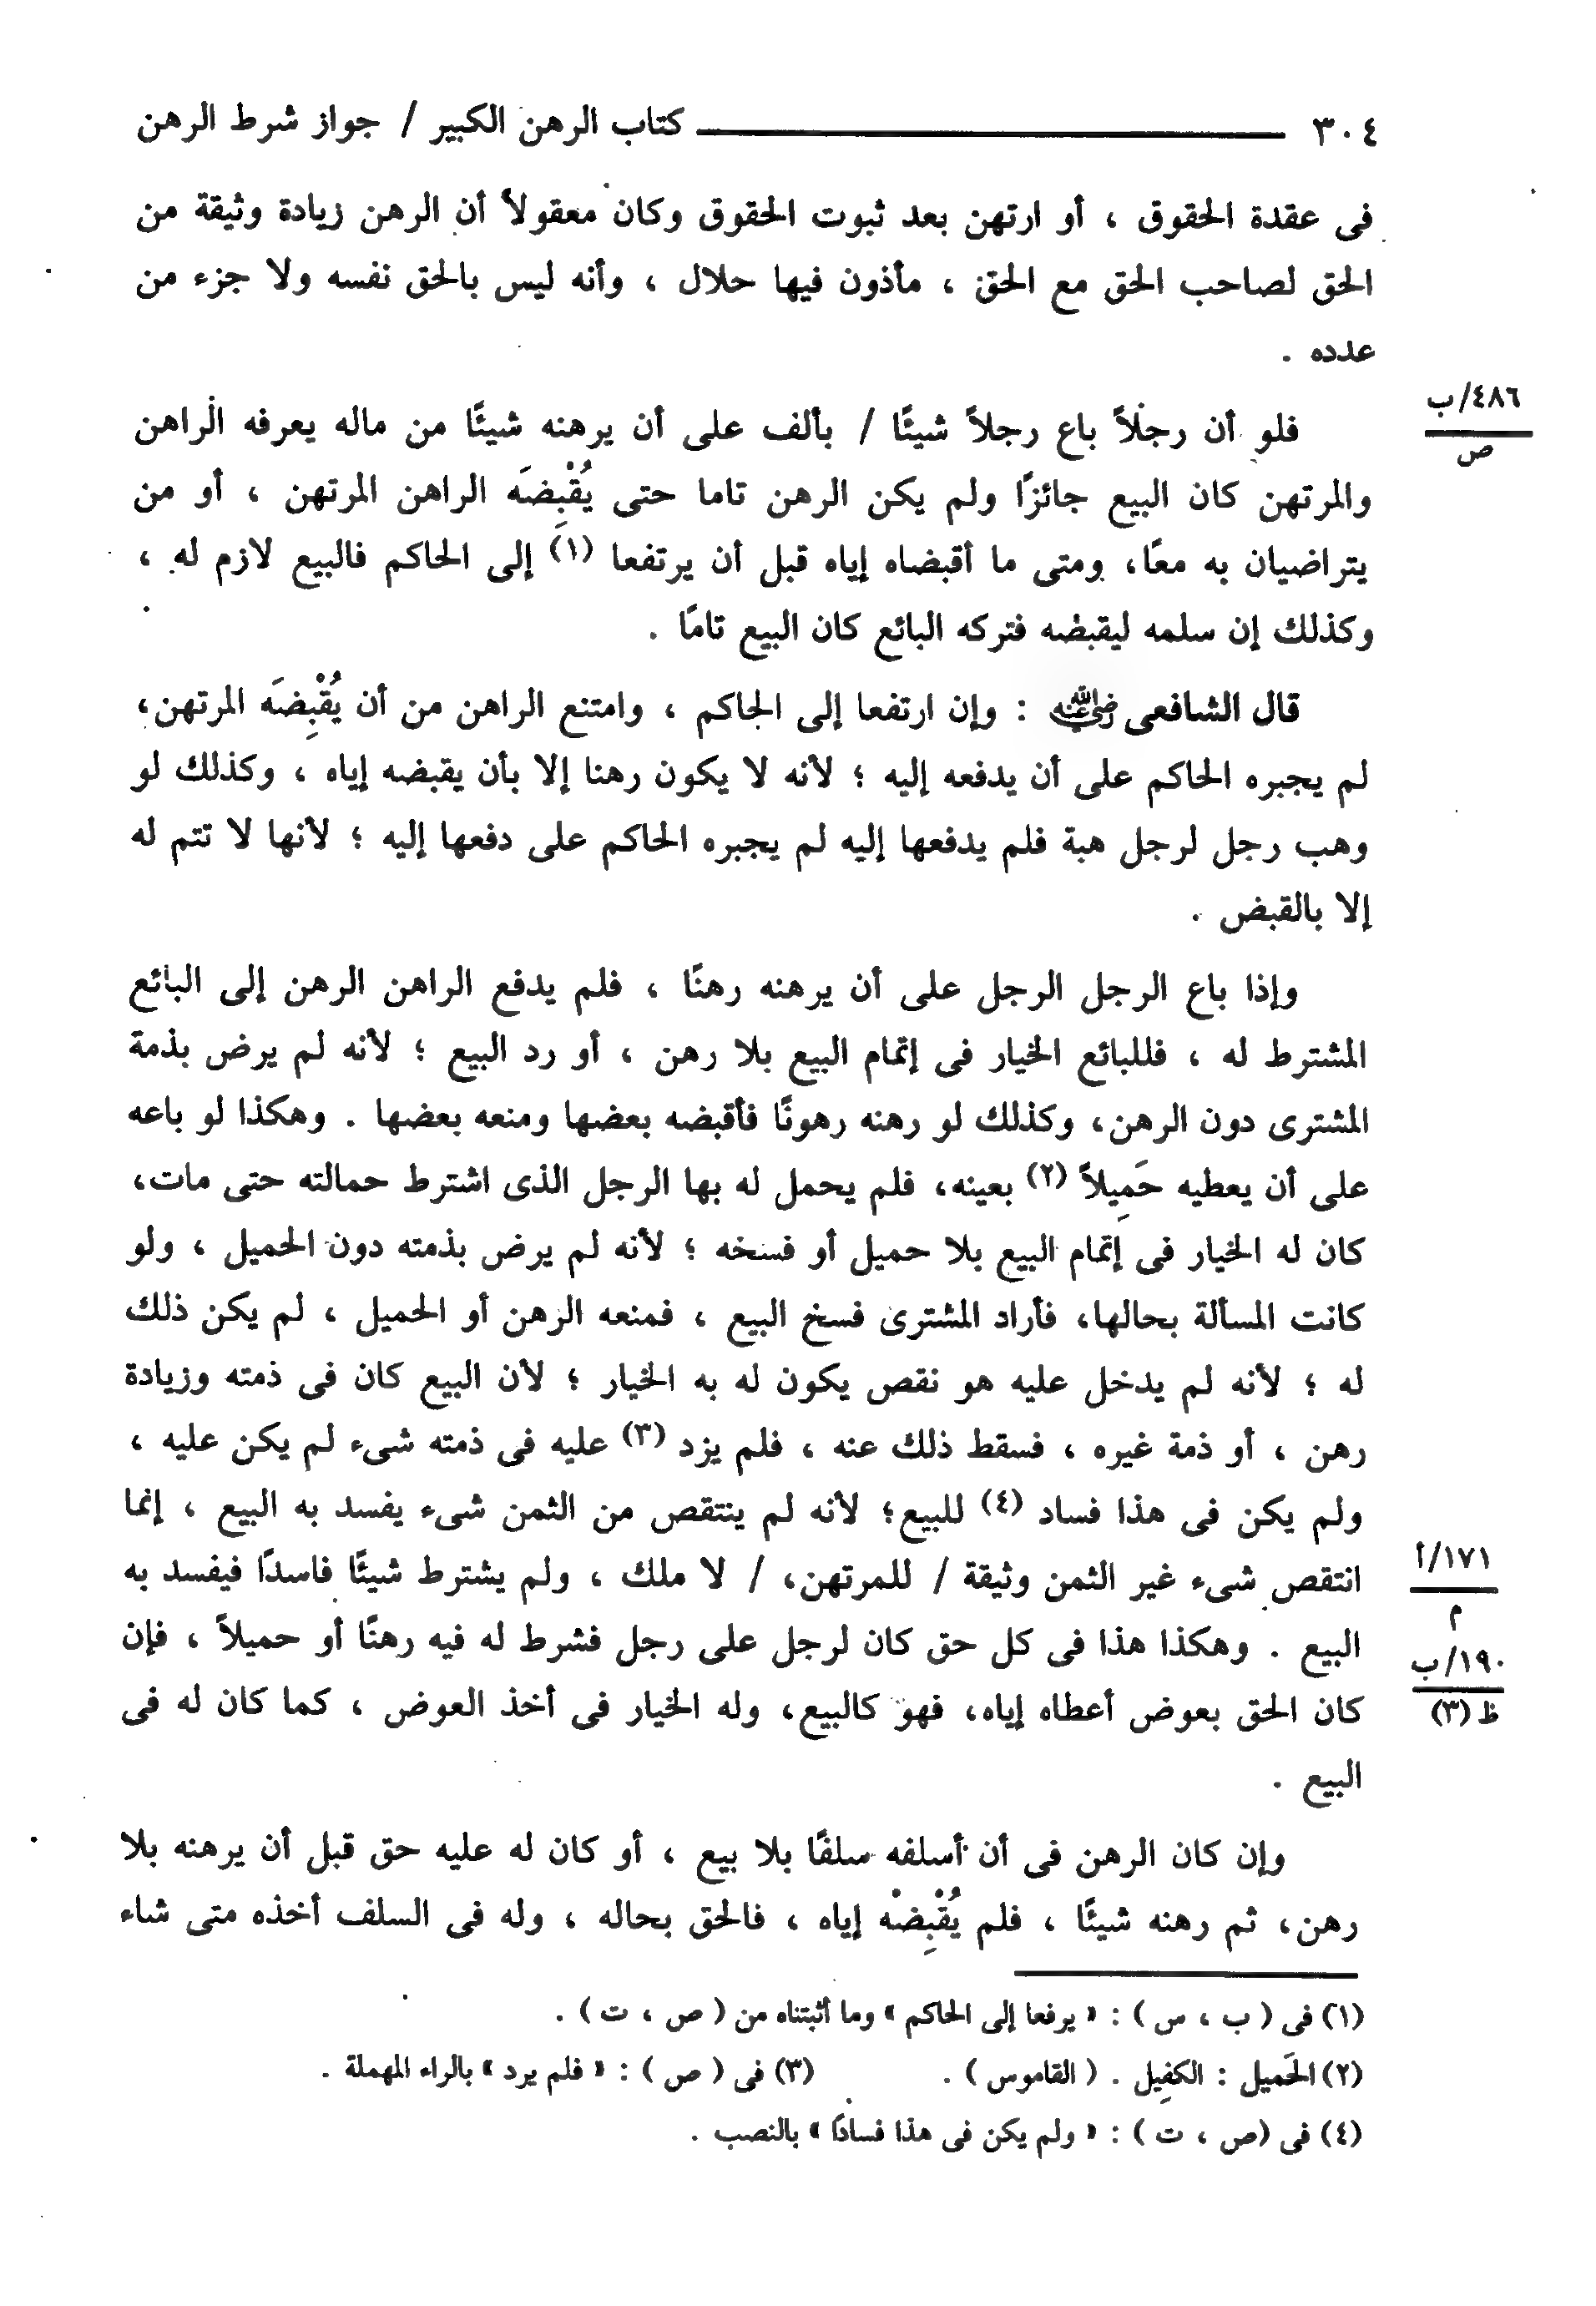 ٣٠٤ كتاب الرهن الكبير / جواز شرط الرهن
فى عقدة الحقوق ، أو ارتهن بعد ثبوت الحقوق وكان معقولاً أن الرهن زيادة وثيقة من
الحق لصاحب الحق مع الحق ، مأذون فيها حلال ، وأنه ليس بالحق نفسه ولا جزء من
عدده .
٤٨٦/ب
ص
فلو أن رجلاً باع رجلاً شيئًا / بألف على أن يرهنه شيئًا من ماله يعرفه الراهن
والمرتهن كان البيع جائزًا ولم يكن الرهن تاما حتى يُقْبِضَه الراهن المرتهن ، أو من
يتراضيان به معًا، ومتى ما أقبضاه إياه قبل أن يرتفعا (١) إلى الحاكم فالبيع لازم له ،
وكذلك إن سلمه ليقبضه فتركه البائع كان البيع تامًا .
قال الشافعى رضي الله عنه : وإن ارتفعا إلى الحاكم ، وامتنع الراهن من أن يُقْبِضَه المرتهن،
لم يجبره الحاكم على أن يدفعه إليه ؛ لأنه لا يكون رهنا إلا بأن يقبضه إياه ، وكذلك لو
وهب رجل لرجل هبة فلم يدفعها إليه لم يجبره الحاكم على دفعها إليه ؛ لأنها لا تتم له
إلا بالقبض .
وإذا باع الرجل الرجل على أن يرهنه رهنًا ، فلم يدفع الراهن الرهن إلى البائع
المشترط له ، فللبائع الخيار فى إتمام البيع بلا رهن ، أو رد البيع ؛ لأنه لم يرض بذمة
المشترى دون الرهن، وكذلك لو رهنه رهونًا فأقبضه بعضها ومنعه بعضها . وهكذا لو باعه
على أن يعطيه حَمِيلاً (٢) بعينه، فلم يحمل له بها الرجل الذى اشترط حمالته حتى مات،
كان له الخيار فى إتمام البيع بلا حميل أو فسخه ؛ لأنه لم يرض بذمته دون الحميل ، ولو
كانت المسألة بحالها، فأراد المشترى فسخ البيع ، فمنعه الرهن أو الحميل ، لم يكن ذلك
له ؛ لأنه لم يدخل عليه هو نقص يكون له به الخيار ؛ لأن البيع كان فى ذمته وزيادة
رهن ، أو ذمة غيره ، فسقط ذلك عنه ، فلم يزد (٣) عليه فى ذمته شىء لم يكن عليه ،
ولم يكن فى هذا فساد (٤) للبيع؛ لأنه لم ينتقص من الثمن شىء يفسد به البيع ، إنما
١٧١/أ
م
انتقص شىء غير الثمن وثيقة / للمرتهن، / لا ملك ، ولم يشترط شيئًا فاسدًا فيفسد به
البيع . وهكذا هذا فى كل حق كان لرجل على رجل فشرط له فيه رهنًا أو حميلاً ، فإن
١٩٠/ب
ظ (٣)
كان الحق بعوض أعطاه إياه، فهو كالبيع، وله الخيار فى أخذ العوض ، كما كان له فى
البيع .
وإن كان الرهن فى أن أسلفه سلفًا بلا بيع ، أو كان له عليه حق قبل أن يرهنه بلا
رهن، ثم رهنه شيئًا ، فلم يُقْبِضْه إياه ، فالحق بحاله ، وله فى السلف أخذه متى شاء
(١) فى ( ب ، س ) : « يرفعا إلى الحاكم » وما أثبتناه من ( ص ، ت ) .
(٢) الحَمِيل : الكفِيل . ( القاموس ) . (٣) فى ( ص ) : « فلم يرد » بالراء المهملة .
(٤) فى (ص ، ت ) : « ولم يكن فى هذا فسادًا » بالنصب .